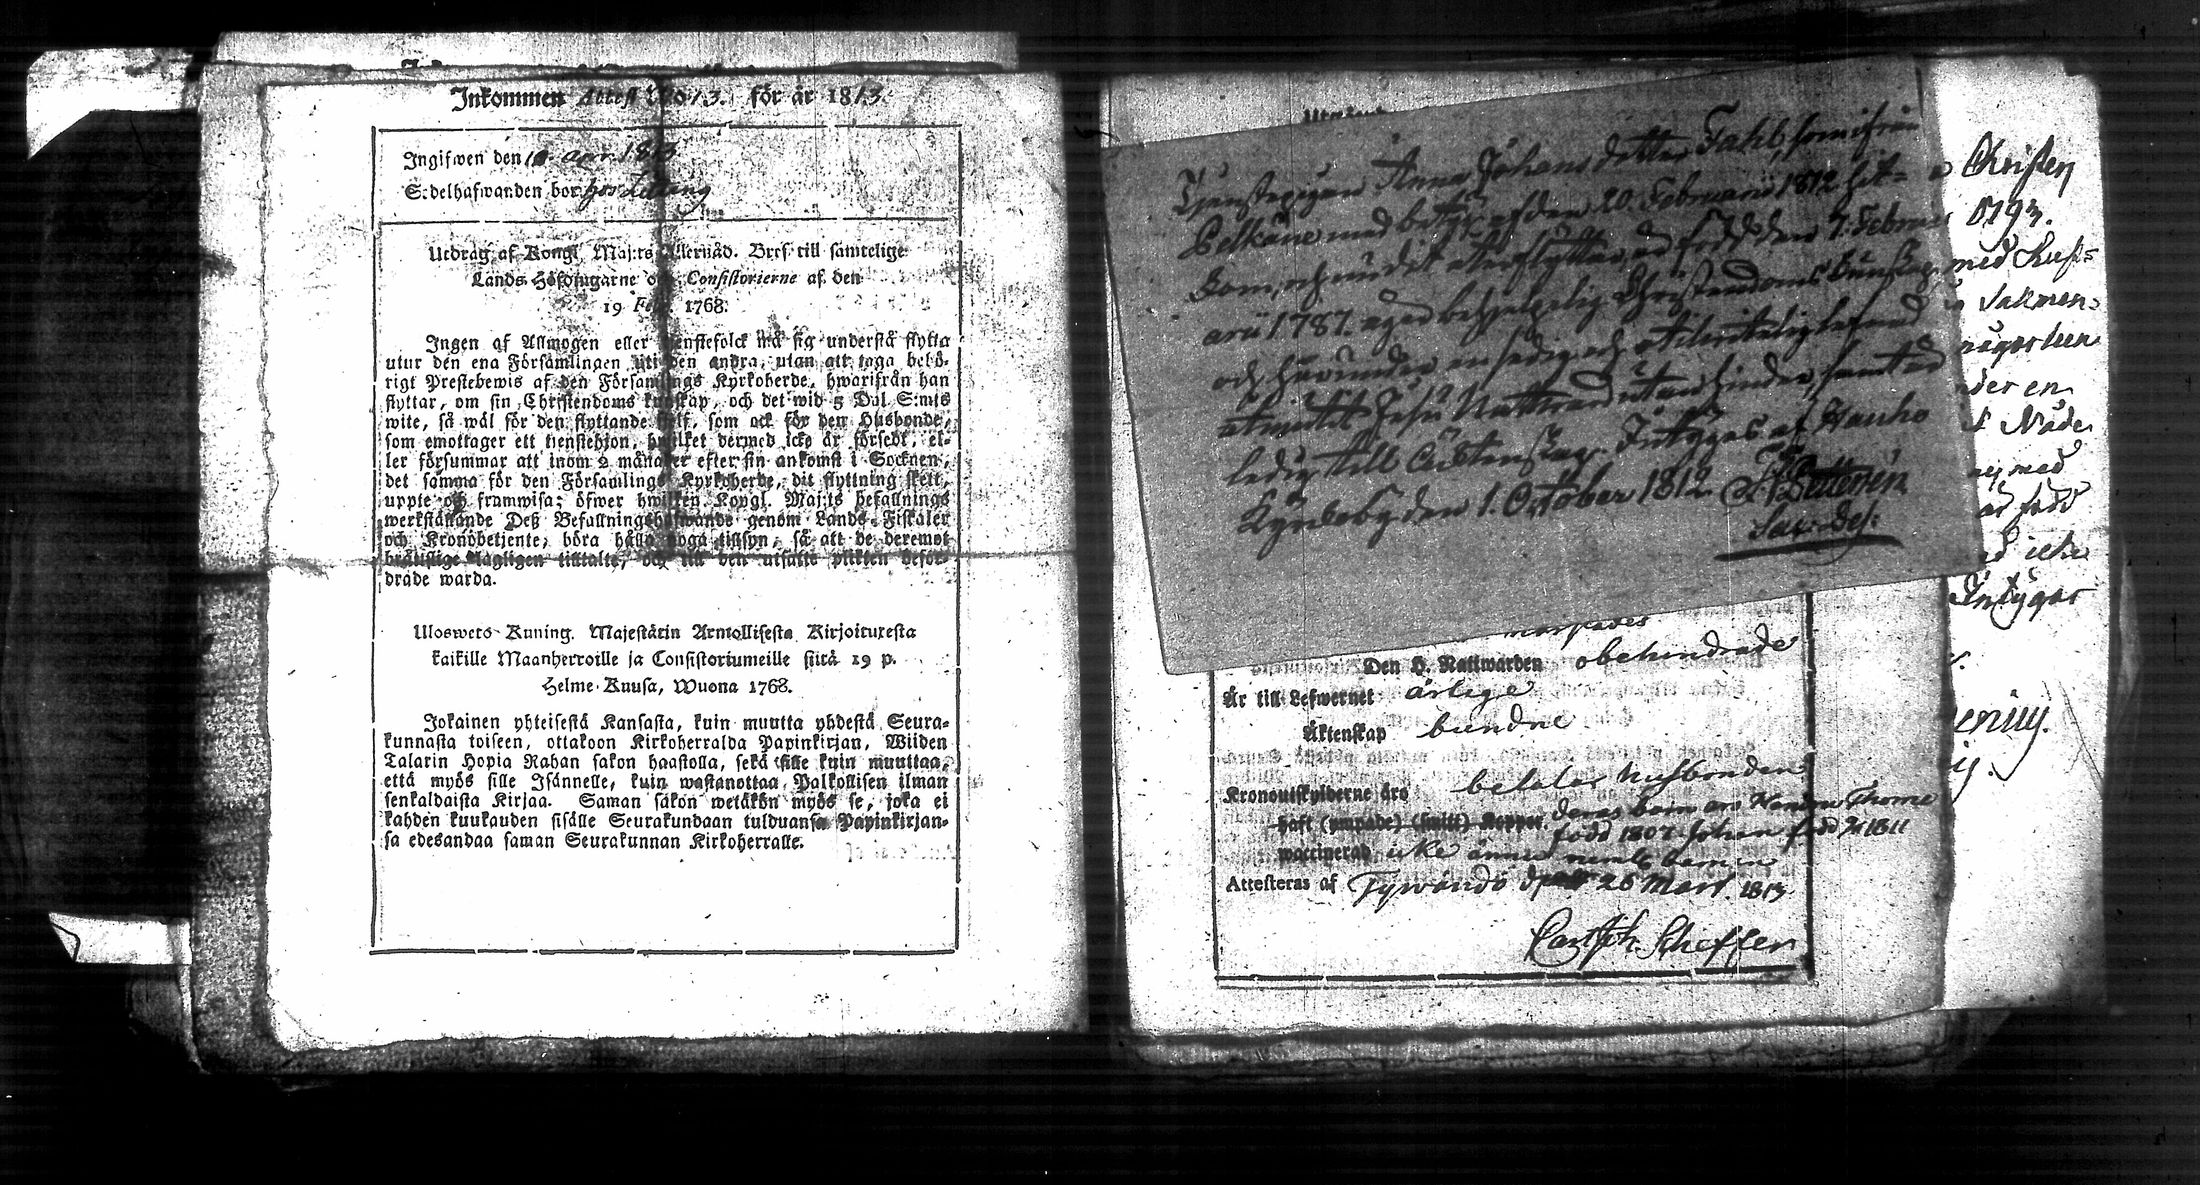 Inkommen Attest No 13. för år 1813.
Ingifwen den 18. apr. 1813
Sedelhafwanden bor hos
Utdrag af Kongl. Maj:ts Allernåd. Bref till samtelige
Lands-Höfdingarne och Consistorierne af den
19 Febr. 1768.
Ingen af Allmogen eller tienstefolck må sig understå flytta
utur den ena Församlingen uti den andra, utan att taga behö-
rigt Prestebewis af den Församlings Kyrkoherde, hwarifrån han
flyttar, om sin Christendoms kunskap, och det wid 5 Dal. S:mts
wite, så wäl för den flyttande sielf, som ock för den Husbonde,
som emottager ett tienstehion, hwilket dermed icke är försedt, el-
ler försummar att inom 2 månader efter sin ankomst i Socknen,
det samma för den Församlings Kyrkoherde, dit flyttning skett,
uppte och framwisa; öfwer hwilken Kongl. Maj:ts befallnings
werkställande Deß Befallningshafwande genom Lands-Fiskaler
och Kronobetjente, böra hålla noga tillsyn, så att de deremot
bråtslige lagligen tilltalte, och till den utsatte plikten beför-
drade warda.
Uloswets Kuning. Majestätin Armollisesta Kirjoituxesta
kaikille Maanherroille ja Consistoriumeille siitä 19 p.
Helme-Kuusa, Wuona 1768.
Jokainen yhteisestä Kansasta, kuin muutta yhdestä Seura-
kunnasta toiseen, ottakoon Kirkoherralda Papinkirjan, Wiiden
Talarin Hopia Rahan sakon haastolla, sekä sille kuin muuttaa,
että myös sille Isännelle, kuin wastanottaa Palkollisen ilman
senkaldaista Kirjaa. Saman sakon wetäkön myös se, joka ei
kahden kuukauden sisälle Seurakundaan tulduansa Papinkirjan-
sa edesandaa saman Seurakunnan Kirkoherralle.
Tjenstepigan Anna Johans dotter Fahl, som ifrån
Pelkäne med betyg af den 20 Februarii 1812 hit-
kom, och nu dit återflyttar, är född den 7. Febru-
arii 1787. äger behjelpelig Christendoms kunskap,
och härunder en sedig och otilvitelig lefnad
åtniutit Jesu Nattvard utan hinder, samt är
ledig till Ächtenskap. Intygas af Hauho
Kyrckoby den 1. October 1812
Sac: Des:
Christen
1793.
med
några
der en
Nåde
med
född
icke
Intygar
Den H. Nattwarden obehindrade
Är till Lefwernet ärlige
Äktenskap bundne
Kronoutskylderne äro betalar husbonden
haft (ympade) (skilt) Kopper. deras barn äro
född 1807. Johan född 1811
waccinerad icke ännu
Attesteras af Tyrwändö d. 26 Mart. 1813.
Carl Joh. Scheffer